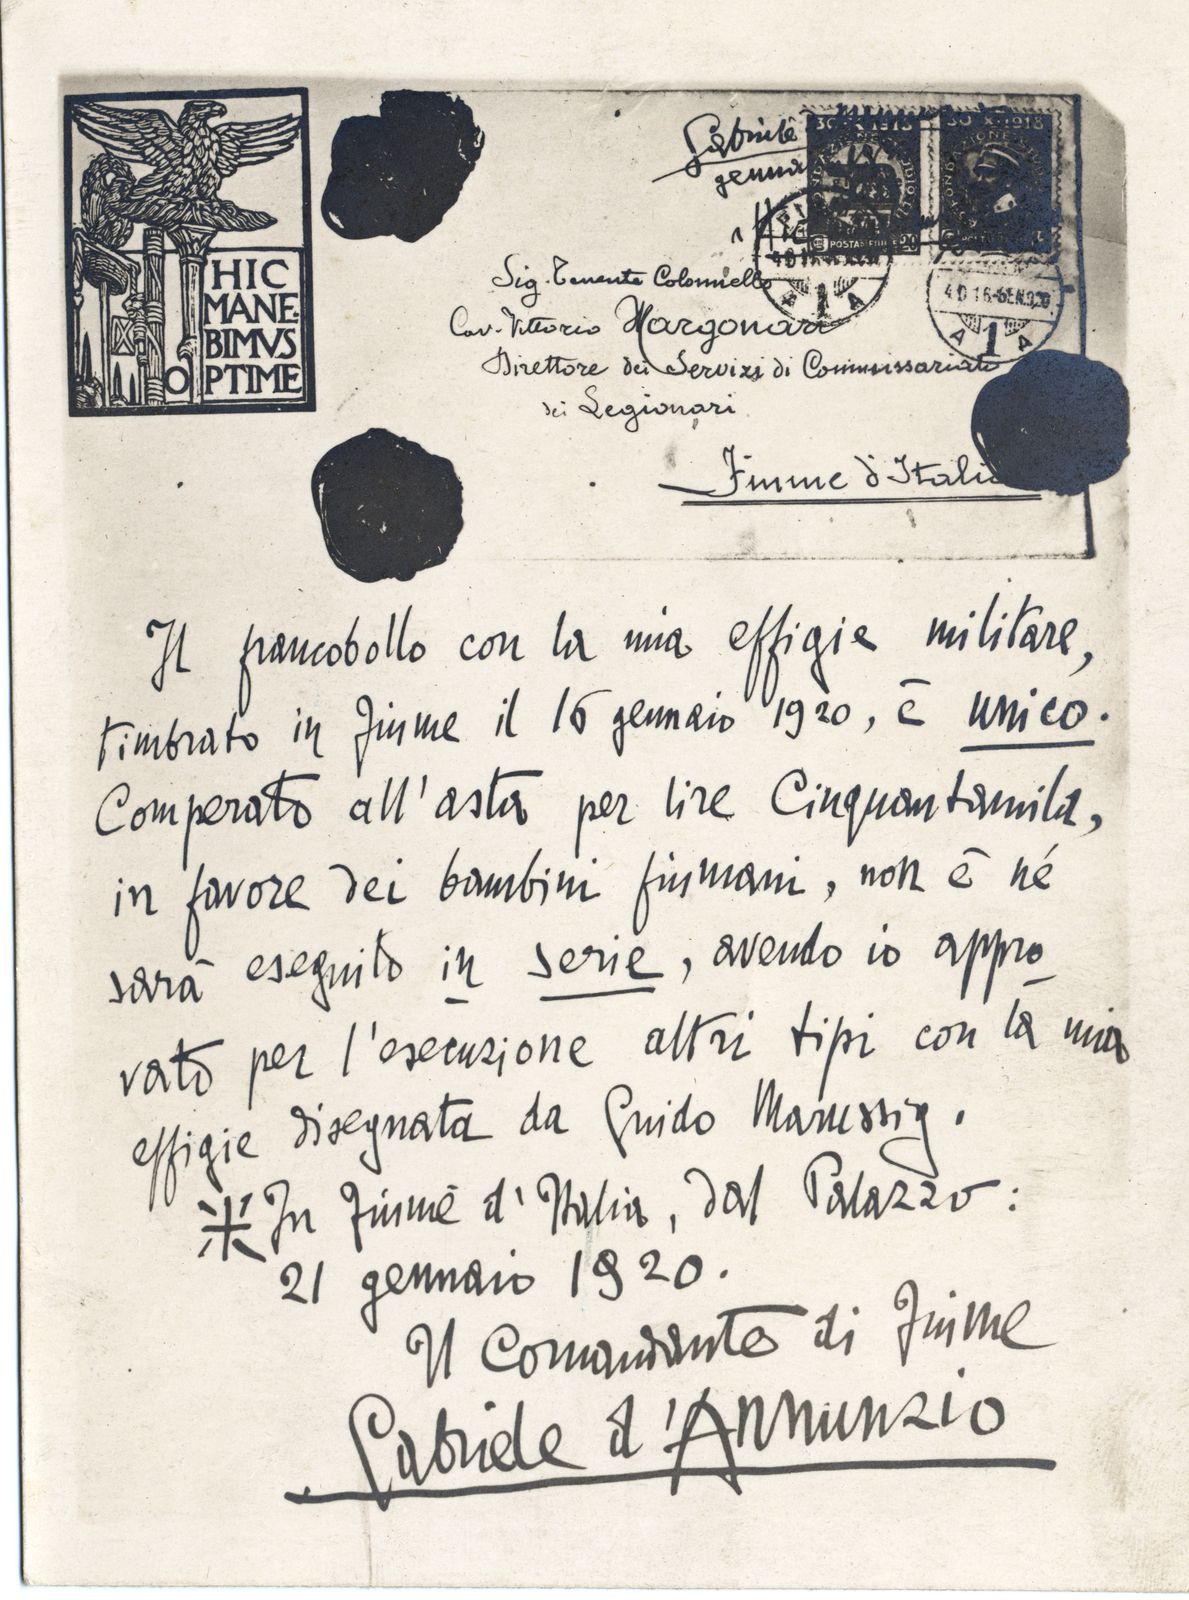 HIC
MANE-
BIMVS
OPTIME
Gabriele
genna
30 X 1918
30 X 1918
POSTA FIUME
Sig. Tenente Colonnello
Cav. Vittorio Margonari
Direttore dei Servizi di Commissariato
dei Legionari
Fiume d'Italia
Il francobollo con la mia effigie militare,
timbrato in Fiume il 16 gennaio 1920, è unico.
Comperato all'asta per lire Cinquantamila,
in favore dei bambini fiumani, non è né
sarà eseguito in serie, avendo io appro
vato per l'esecuzione altri tipi con la mia
effigie disegnata da Guido Marussig.
※ In Fiume d'Italia, dal Palazzo:
21 gennaio 1920.
Il Comandante di Fiume
Gabriele d'Annunzio